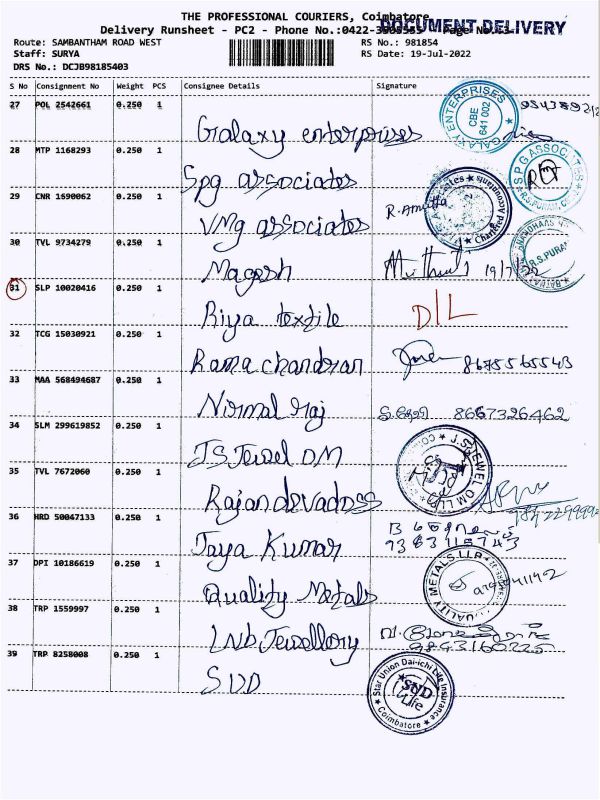 THE PROFESSIONAL COURIERS, Coimbatore
DOCUMENT DELIVERY
Delivery Runsheet - PC2 - Phone No.:0422-
Route: SAMBANTHAM ROAD WEST
RS No.: 981854
Staff: SURYA
RS Date: 19-Jul-2022
DRS No.: DCJB98185403
S No Consignment No Weight PCS Consignee Details Signature
27 POL 2542661 0.250 1 Galaxy enterprises
GALAXY ENTERPRISES CBE 641 002
28 MTP 1168293 0.250 1 Spg associates
S.P.G ASSOCIATES
29 CNR 1690062 0.250 1 VMg associates R. Amutha
Chartered Accountants
30 TVL 9734279 0.250 1 Magesh 19/7/22
R.S.PURAM
31 SLP 10020416 0.250 1 Riya textile D/L
32 TCG 15030921 0.250 1 Rama chandran 8675565543
33 MAA 568494687 0.250 1 Nirmal raj 8667326462
34 SLM 299619852 0.250 1 JS Jewel OM
J.S.JEWEL OM.LLP
35 TVL 7672060 0.250 1 Rajan devadoss
36 HRD 50047133 0.250 1 Jaya Kumar
9383115743
37 DPI 10186619 0.250 1 Quality Metals
QUALITY METALS.LLP
38 TRP 1559997 0.250 1 LNb Jewellory
9843160225
39 TRP 8258008 0.250 1 SUD
Star Union Dai-ichi Life Insurance
SUD Life
Coimbatore